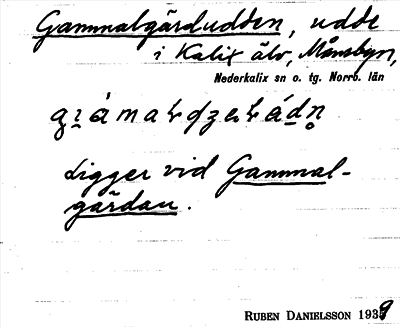 Gammalgårdudden, udde
i Kalix älv, Månsbyn,
Nederkalix sn o. tg. Norrb. län
Ligger vid Gammal-
gårdan.
RUBEN DANIELSSON 1939